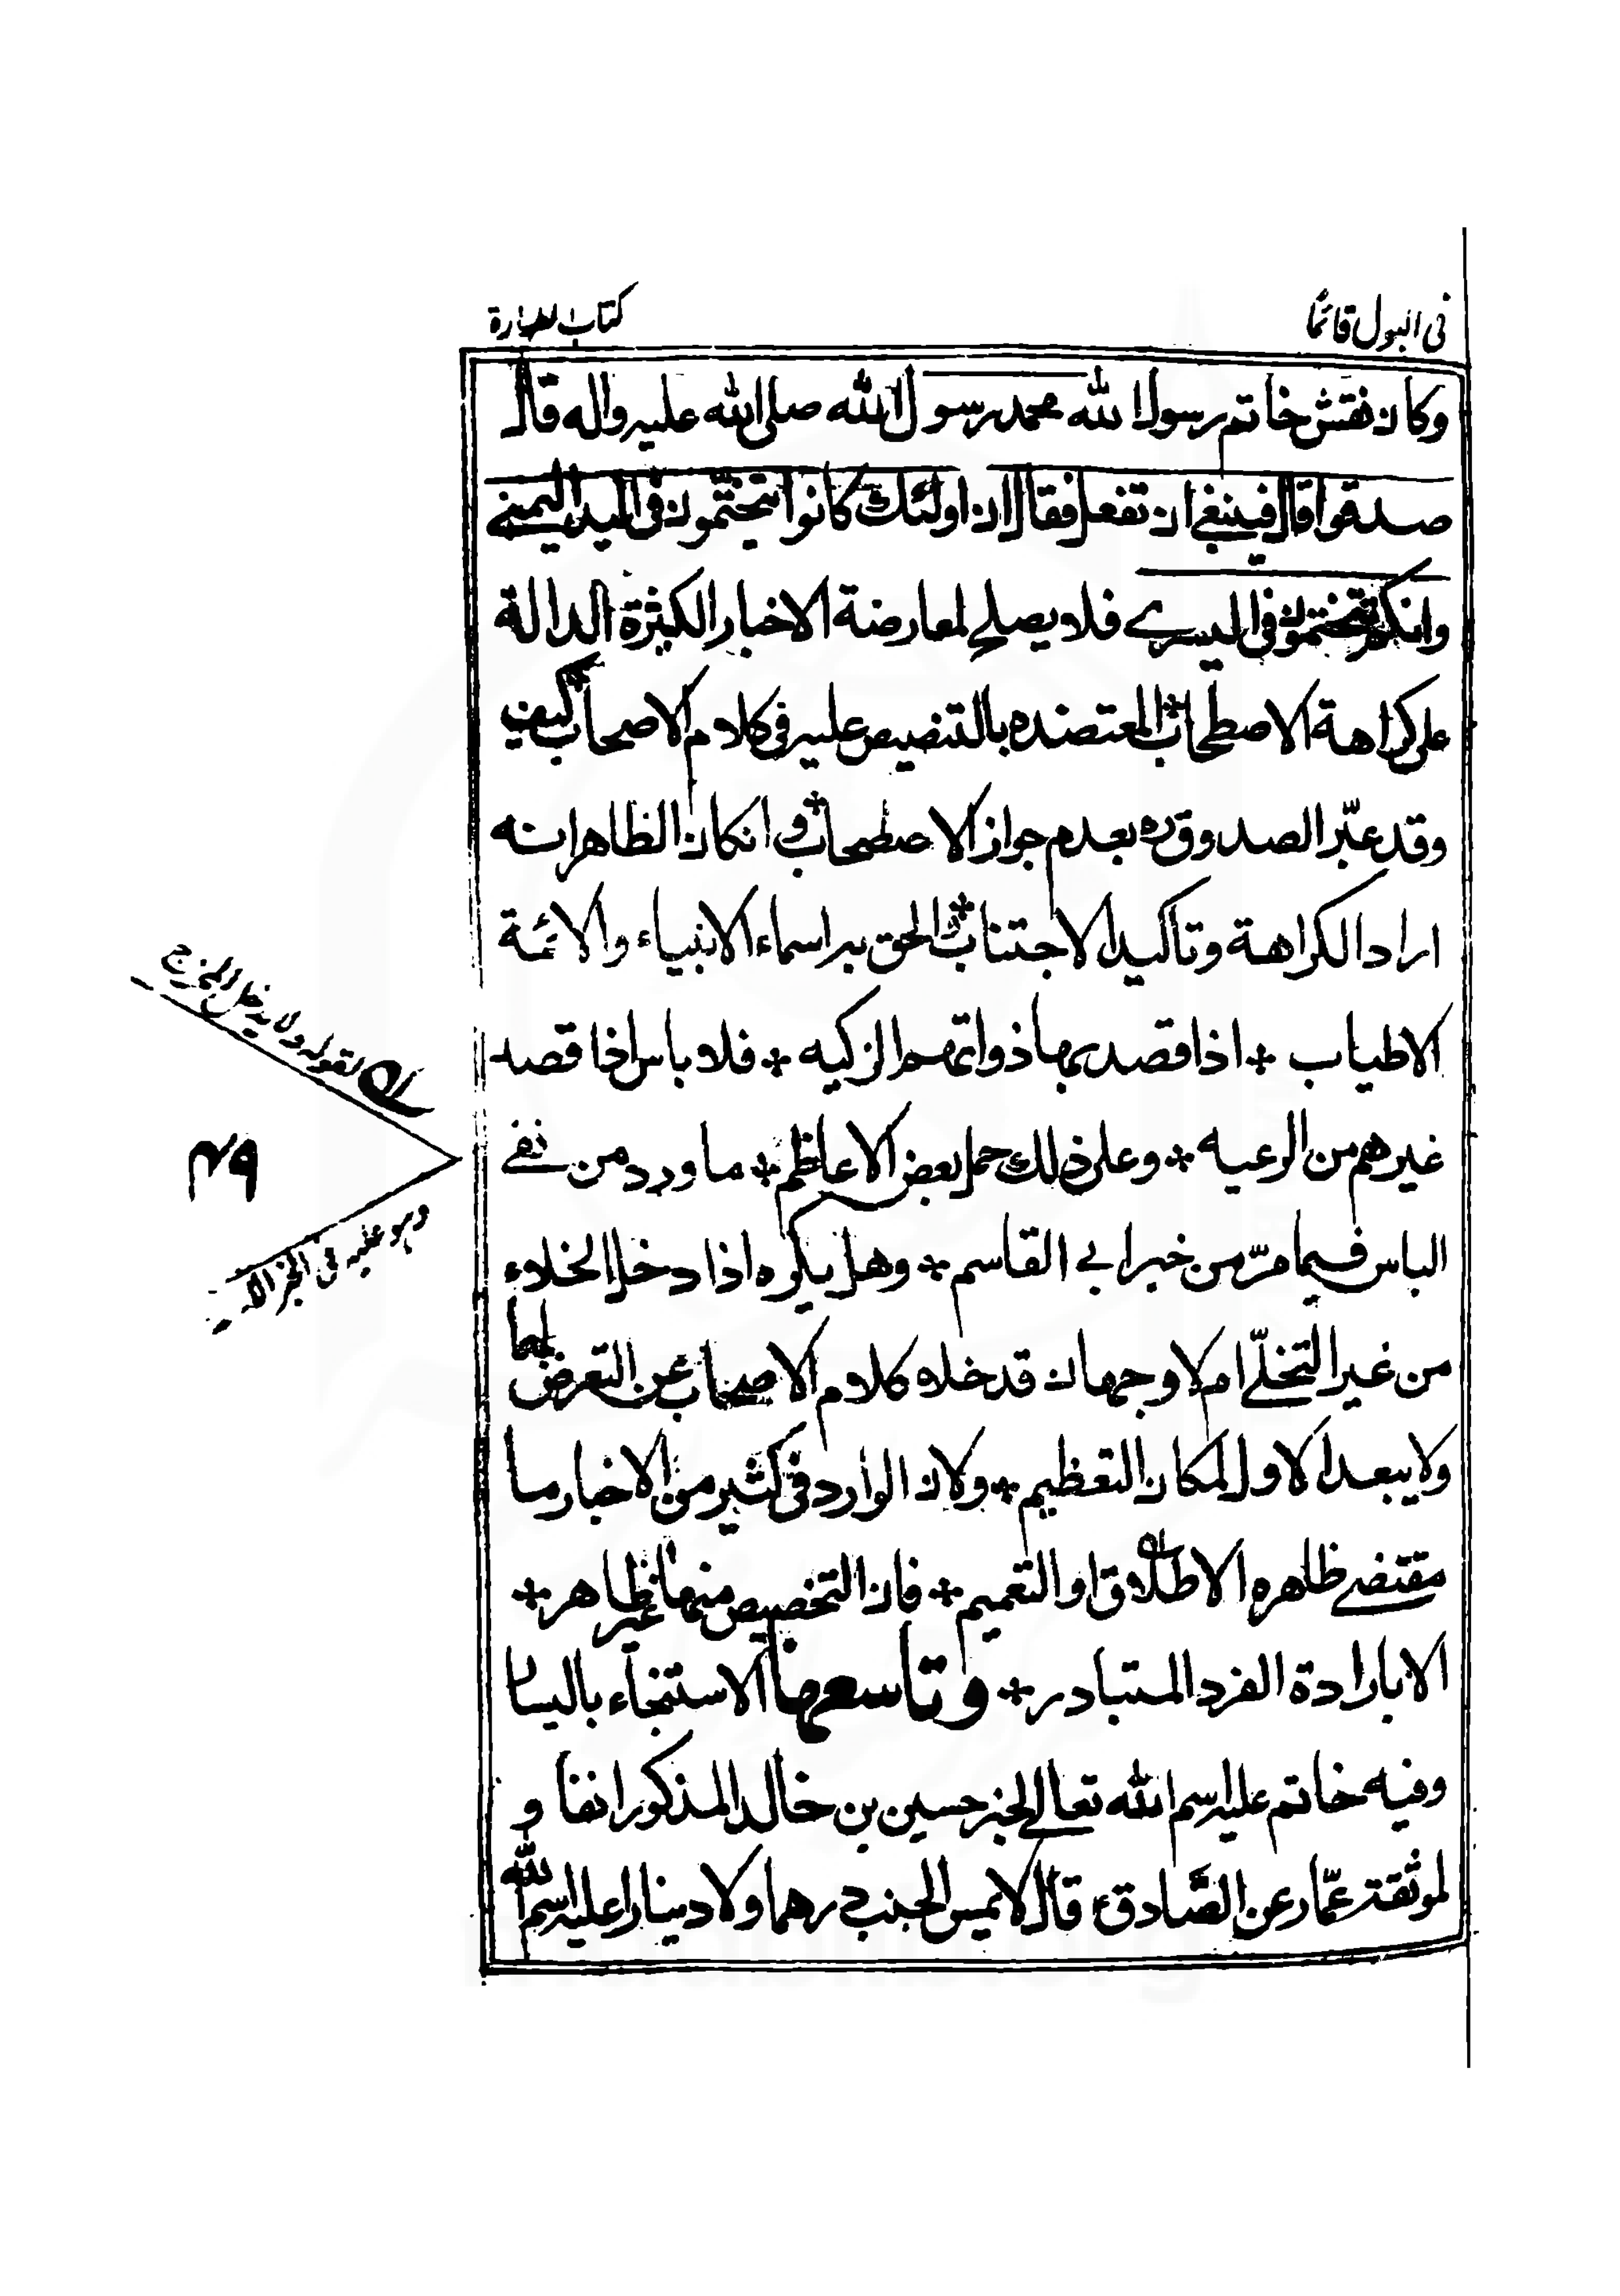 فى البول قائمًا
كتاب الطهارة
وكان نقش خاتم رسول الله محمد رسول الله صلى الله عليه واله قال
صدقوا قال فينبغي ان تفعل فقال ان اولئك كانوا يتختمون فى اليد اليمنى
وانكم تتختمون فى اليسرى فلا يصلح لمعارضة الاخبار الكثيرة الدالة
على كراهة الاصطحاب * المعتضده بالتنصيص عليه فى كلام الاصحاب * كيف
وقد عبّر الصدوق ره بعدم جواز الاصطحاب * و انكان الظاهر انه
اراد الكراهة وتاكيد الاجتناب * والحق به اسماء الانبياء والائمة
الاطياب * اذا قصد بها ذواتهم الزكيه * فلا باس اذا قصد
غيرهم من الرعيه * وعلى ذلك حمل بعض الاعاظم * ما ورد من نفى
الباس فيما مرّ من خبر ابي القاسم * وهل يكره اذا دخل الخلاء
من غير التخلّى ام لا وجهان قد خلا كلام الاصحاب عن التعرض لهما
ولا يبعد الاول لمكان التعظيم * ولان الوارد فى كثير من الاخبار ما
مقتضى ظاهره الاطلاق او التعميم * فان التخصيص منها غير ظاهر *
الا بارادة الفرد المتبادر * وتاسعها الاستنجاء باليسار
وفيه خاتم عليه اسم الله تعالى لخبر حسين بن خالد المذكور انفا و
لموثقة عمّار عن الصّادق ع قال لا يمس الجنب درهما ولا دينارا عليه اسم الله
لقوله ولا يدخل المخرج
۴۹
وهو عليه فى الخبر